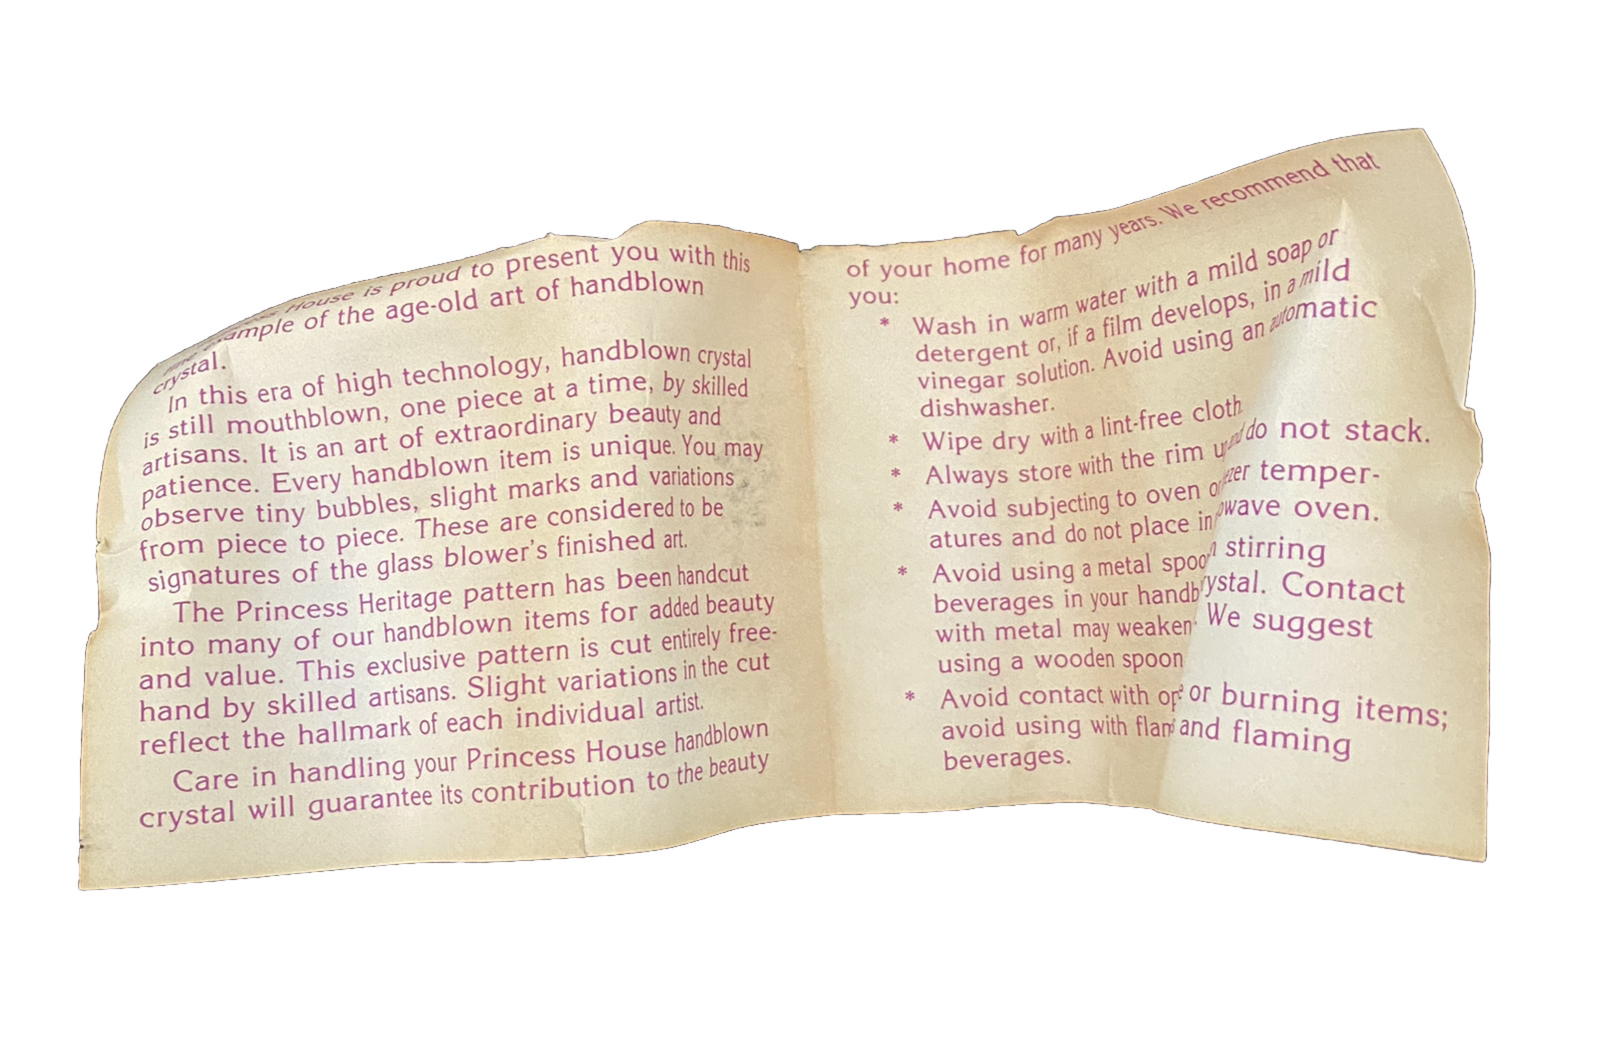 House is proud to present you with this
example of the age-old art of handblown
crystal.
In this era of high technology, handblown crystal
is still mouthblown, one piece at a time, by skilled
artisans. It is an art of extraordinary beauty and
patience. Every handblown item is unique. You may
observe tiny bubbles, slight marks and variations
from piece to piece. These are considered to be
signatures of the glass blower's finished art.
The Princess Heritage pattern has been handcut
into many of our handblown items for added beauty
and value. This exclusive pattern is cut entirely free-
hand by skilled artisans. Slight variations in the cut
reflect the hallmark of each individual artist.
Care in handling your Princess House handblown
crystal will guarantee its contribution to the beauty
of your home for many years. We recommend that
you:
* Wash in warm water with a mild soap or
detergent or, if a film develops, in a mild
vinegar solution. Avoid using an automatic
dishwasher.
* Wipe dry with a lint-free cloth
* Always store with the rim up and do not stack.
* Avoid subjecting to oven or temper-
atures and do not place in oven.
* Avoid using a metal spoon stirring
beverages in your Contact
with metal may weaken We suggest
using a wooden spoon
* Avoid contact with or burning items;
avoid using with and flaming
beverages.